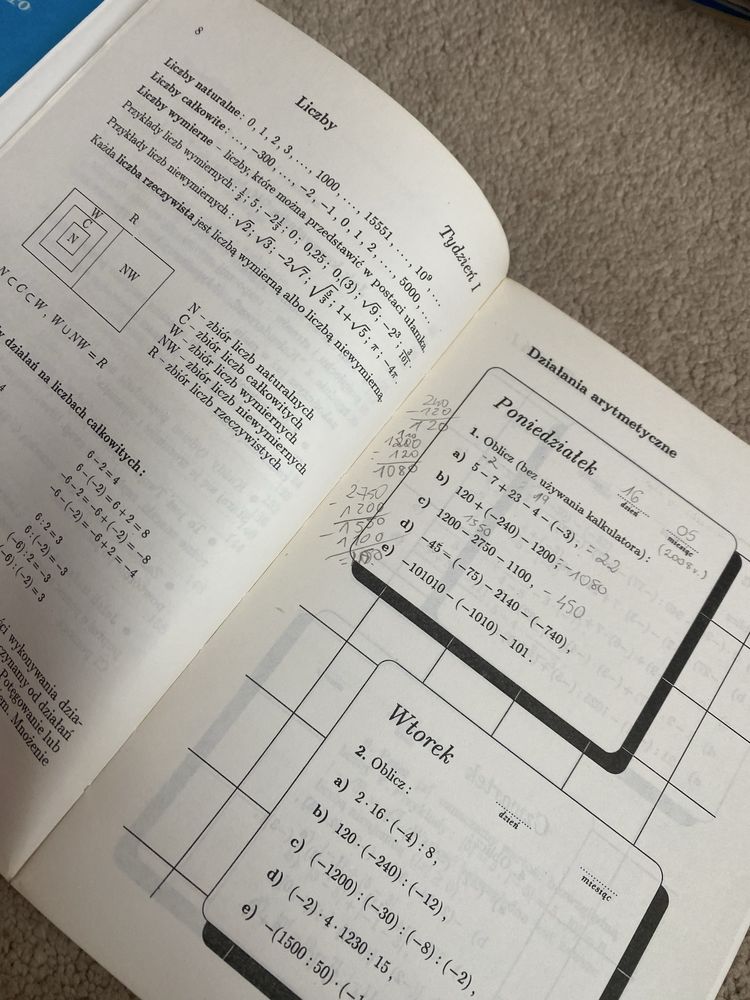 8
Liczby
Tydzień I
Liczby naturalne: 0, 1, 2, 3, ..., 1000, ..., 15551, ..., 10⁹...
Liczby całkowite: ..., −300, ..., −2, −1, 0, 1, 2, ..., 5000...
Liczby wymierne – liczby, które można przedstawić w postaci ułamka.
Przykłady liczb wymiernych: 1/2; 5; −2 1/3; 0; 0,25; 0,(3); √9; −2³; 3/101.
Przykłady liczb niewymiernych: √2; √3; −2√7; √(5/3); 1+√5; π; −4π.
Każda liczba rzeczywista jest liczbą wymierną albo liczbą niewymierną.
W
C
N
R
NW
N – zbiór liczb naturalnych
C – zbiór liczb całkowitych
W – zbiór liczb wymiernych
NW – zbiór liczb niewymiernych
R – zbiór liczb rzeczywistych
N ⊂ C ⊂ W, W ∪ NW = R
działań na liczbach całkowitych:
4
6−2=4
6−(−2)=6+2=8
−6−2=−6+(−2)=−8
−6−(−2)=−6+2=−4
6:2=3
6:(−2)=−3
(−6):2=−3
(−6):(−2)=3
wykonywania dzia-
od działań
Potęgowanie lub
Mnożenie
Działania arytmetyczne
Poniedziałek
16
dzień
05
miesiąc
(2008r.)
1. Oblicz (bez używania kalkulatora):
a) 5−7+23−4−(−3), = 22
-2 19
b) 120+(−240)−1200, -1080
c) 1200−2750−1100, - 450
1550
d) −45−(−75)−2140−(−740),
e) −101010−(−1010)−101.
240
-120
120
1200
- 120
1080
2750
- 1200
1550
1100
Wtorek
dzień
miesiąc
2. Oblicz:
a) 2·16·(−4):8,
b) 120·(−240):(−12),
c) (−1200):(−30):(−8):(−2),
d) (−2)·4·1230:15,
e) −(1500:50)·(−1